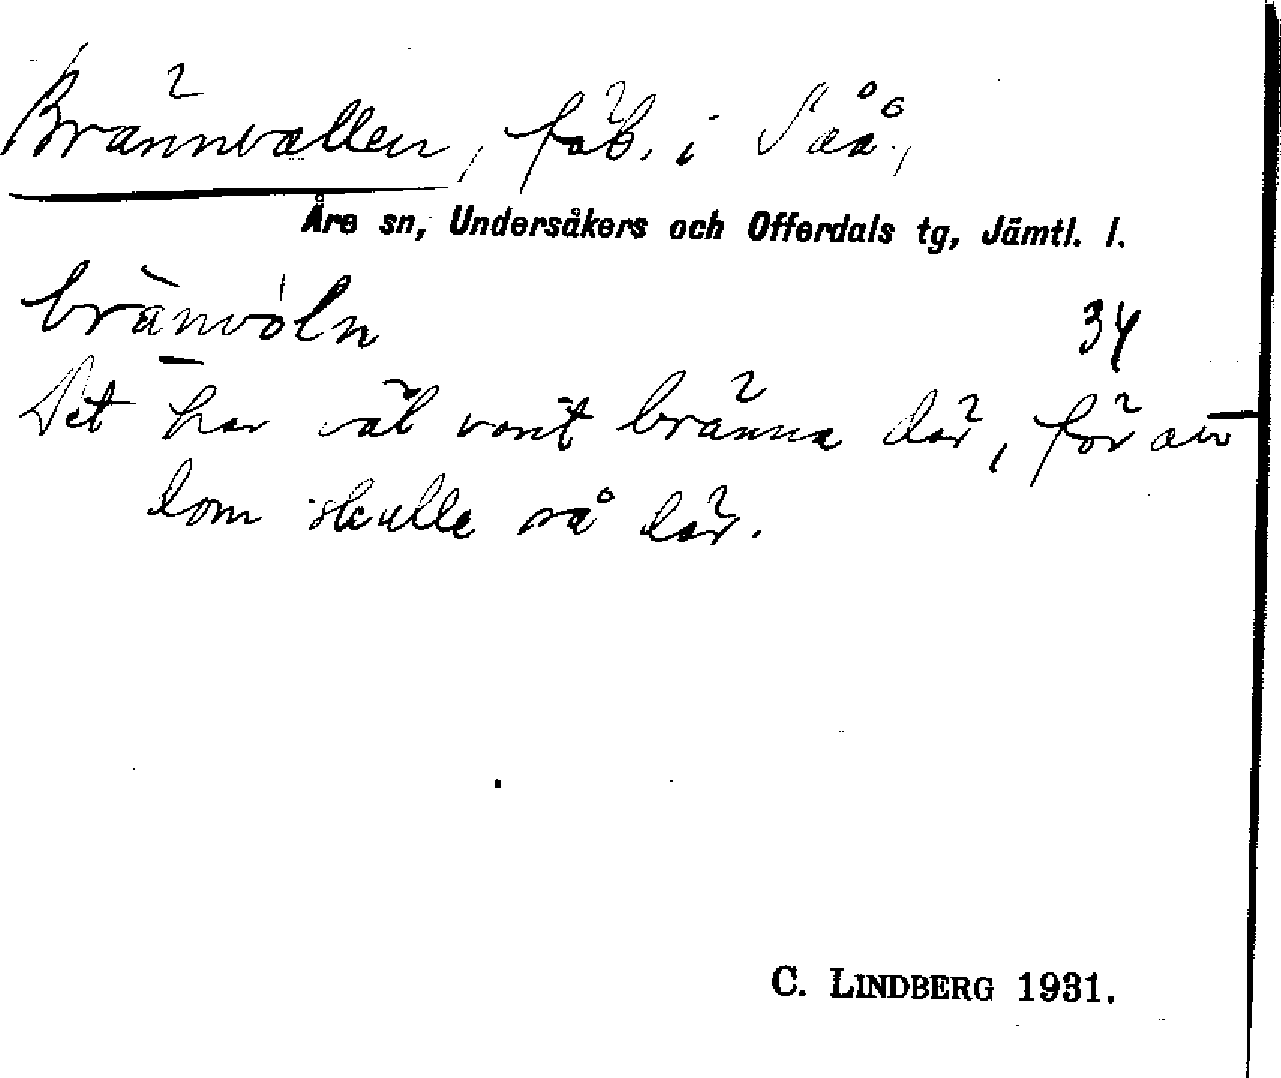 Brännvallen, fäb. i Såå,
Åre sn, Undersåkers och Offerdals tg, Jämtl. l.
brä̀nvóln
34
Det har väl vorit bränna där, för att
dom skulle så där.
C. LINDBERG 1931.